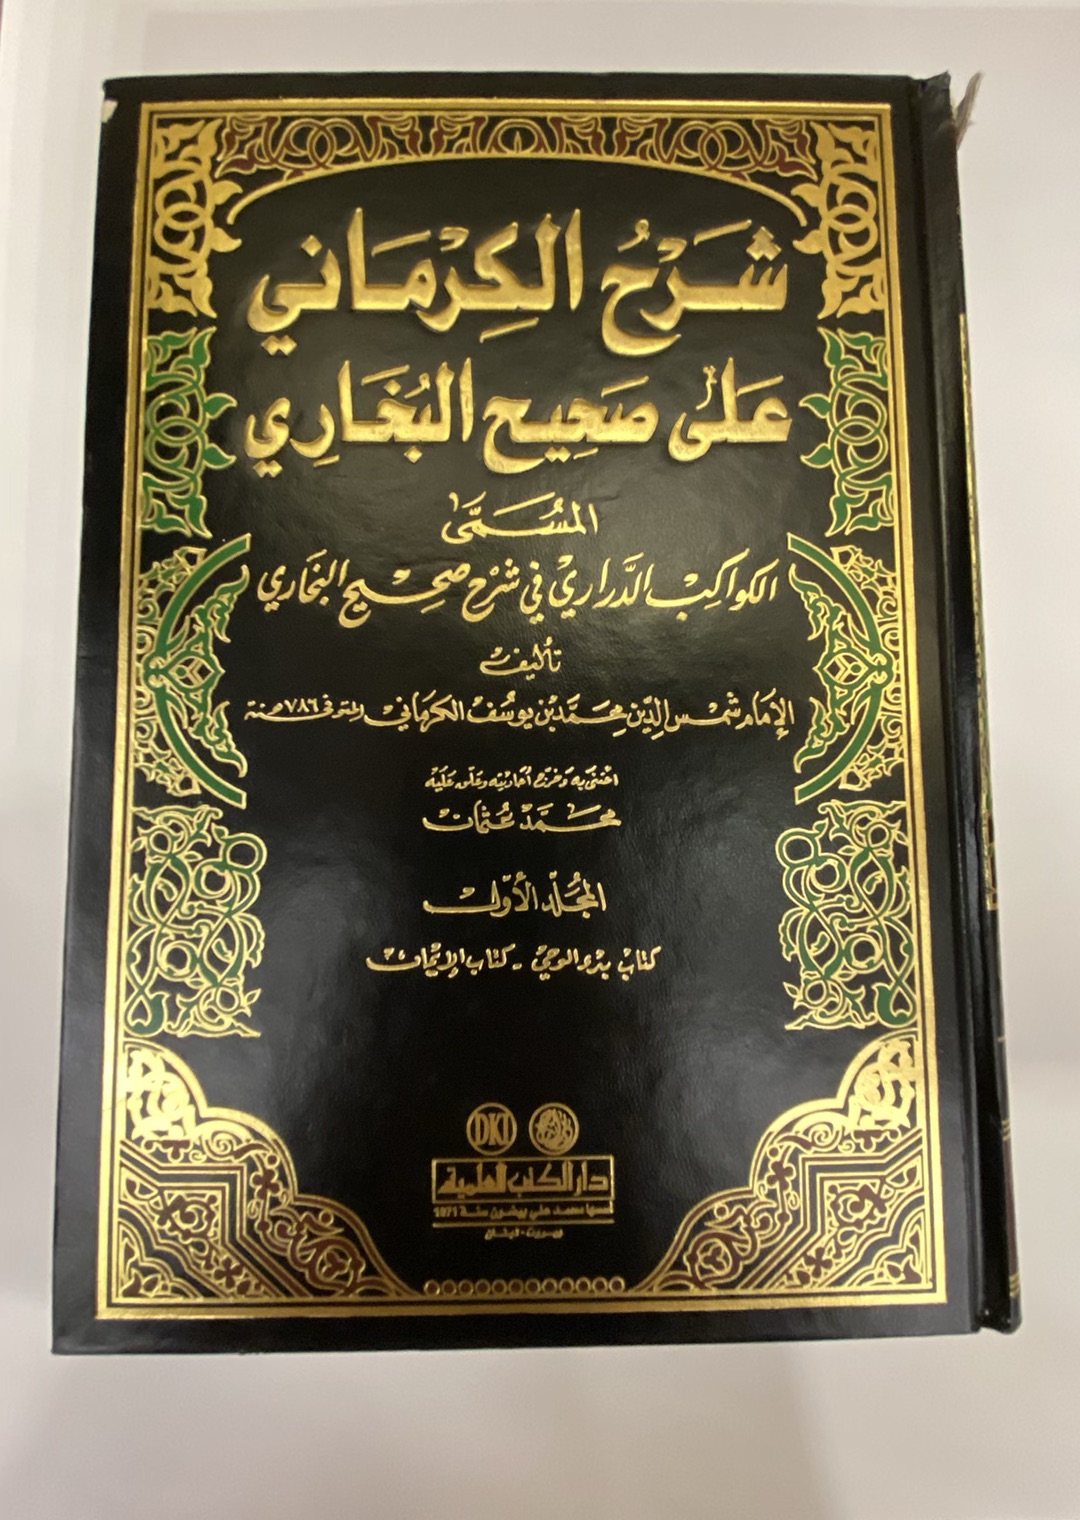 شَرْحُ الكِرْمَاني
عَلىٰ صَحِيح البُخَاري
المُسَمَّى
الكواكِب الدَّراري في شَرْح صَحِيْح البخَاري
تأليف
الإمَام شمْس الدِّين محِمَّد بْن يوسُف الكَرمَاني المتوفى ٧٨٦ هـنة
اعتنى به وخرّج أحاديثه وعلّق عليه
محمَّد عُثمان
المجُلّد الأوّل
كتاب بدء الوحي - كتاب الإيمان
DKI
دار الكتب العلمية
أسسها محمد علي بيضون سنة 1971
بيروت - لبنان